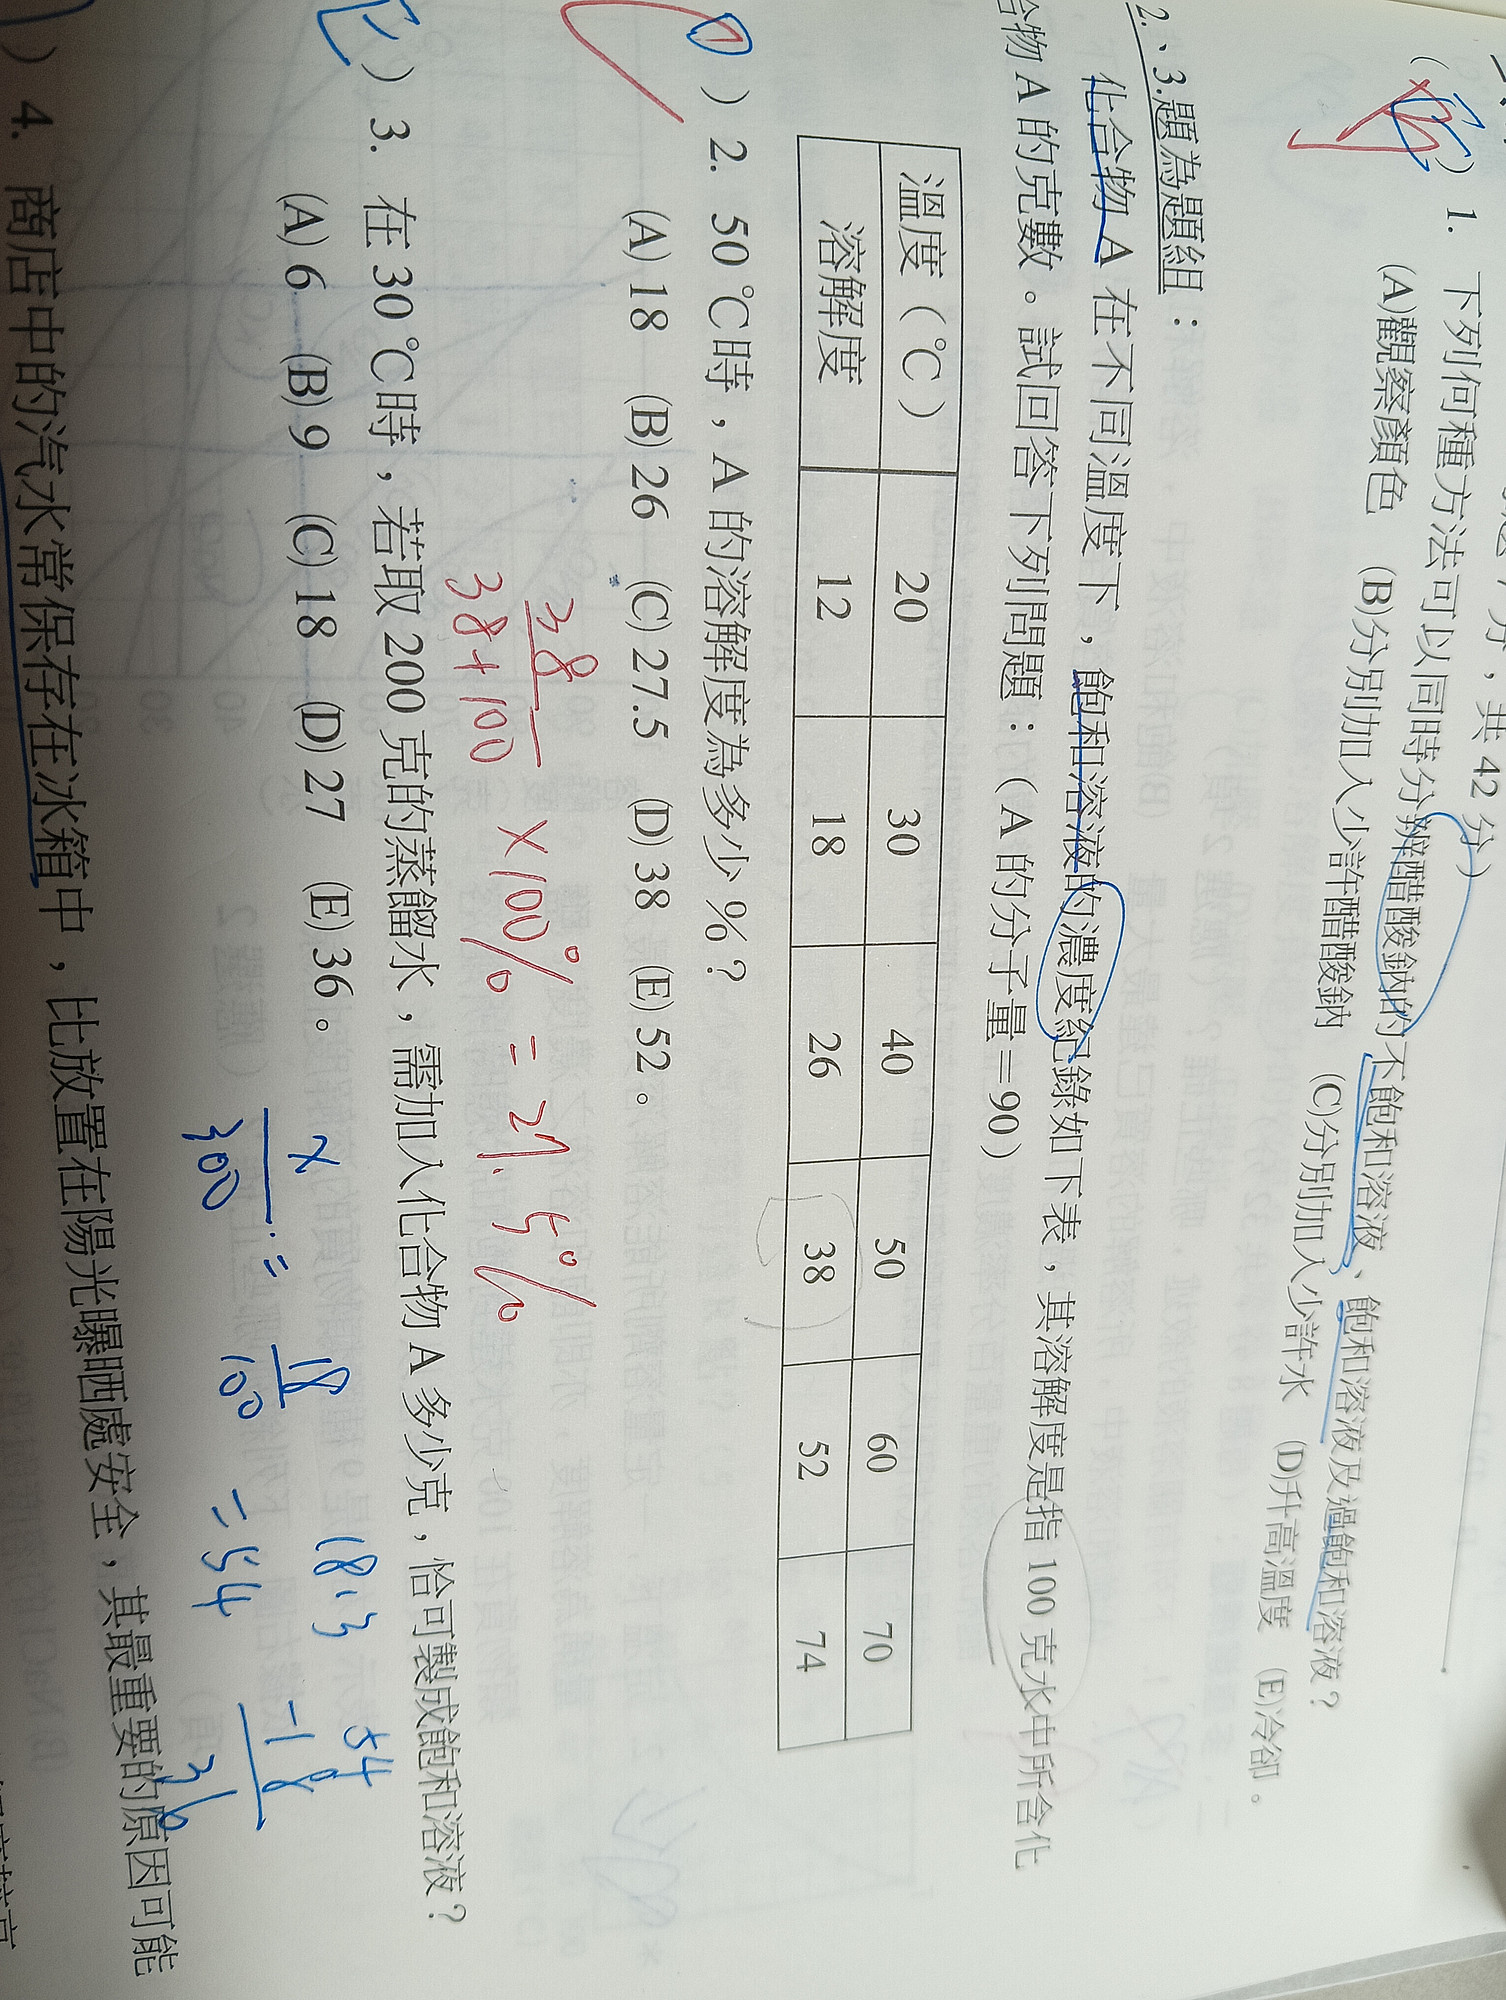 分,共 42 分)
( ) 1. 下列何種方法可以同時分辨醋酸鈉的不飽和溶液、飽和溶液及過飽和溶液?
(A)觀察顏色 (B)分別加入少許醋酸鈉 (C)分別加入少許水 (D)升高溫度 (E)冷卻。
2.、3.題為題組:
化合物 A 在不同溫度下,飽和溶液的濃度紀錄如下表,其溶解度是指 100 克水中所含化
合物 A 的克數。試回答下列問題:(A 的分子量=90)
溫度(℃) 20 30 40 50 60 70
溶解度 12 18 26 38 52 74
( ) 2. 50 ℃時,A 的溶解度為多少 %?
(A) 18 (B) 26 (C) 27.5 (D) 38 (E) 52。
38
38+100 ×100% = 27.5%
( ) 3. 在 30 ℃時,若取 200 克的蒸餾水,需加入化合物 A 多少克,恰可製成飽和溶液?
(A) 6 (B) 9 (C) 18 (D) 27 (E) 36。
x 18 18·3 54
300 = 100 = 54 -18
36
) 4. 商店中的汽水常保存在冰箱中,比放置在陽光曝晒處安全,其最重要的原因可能